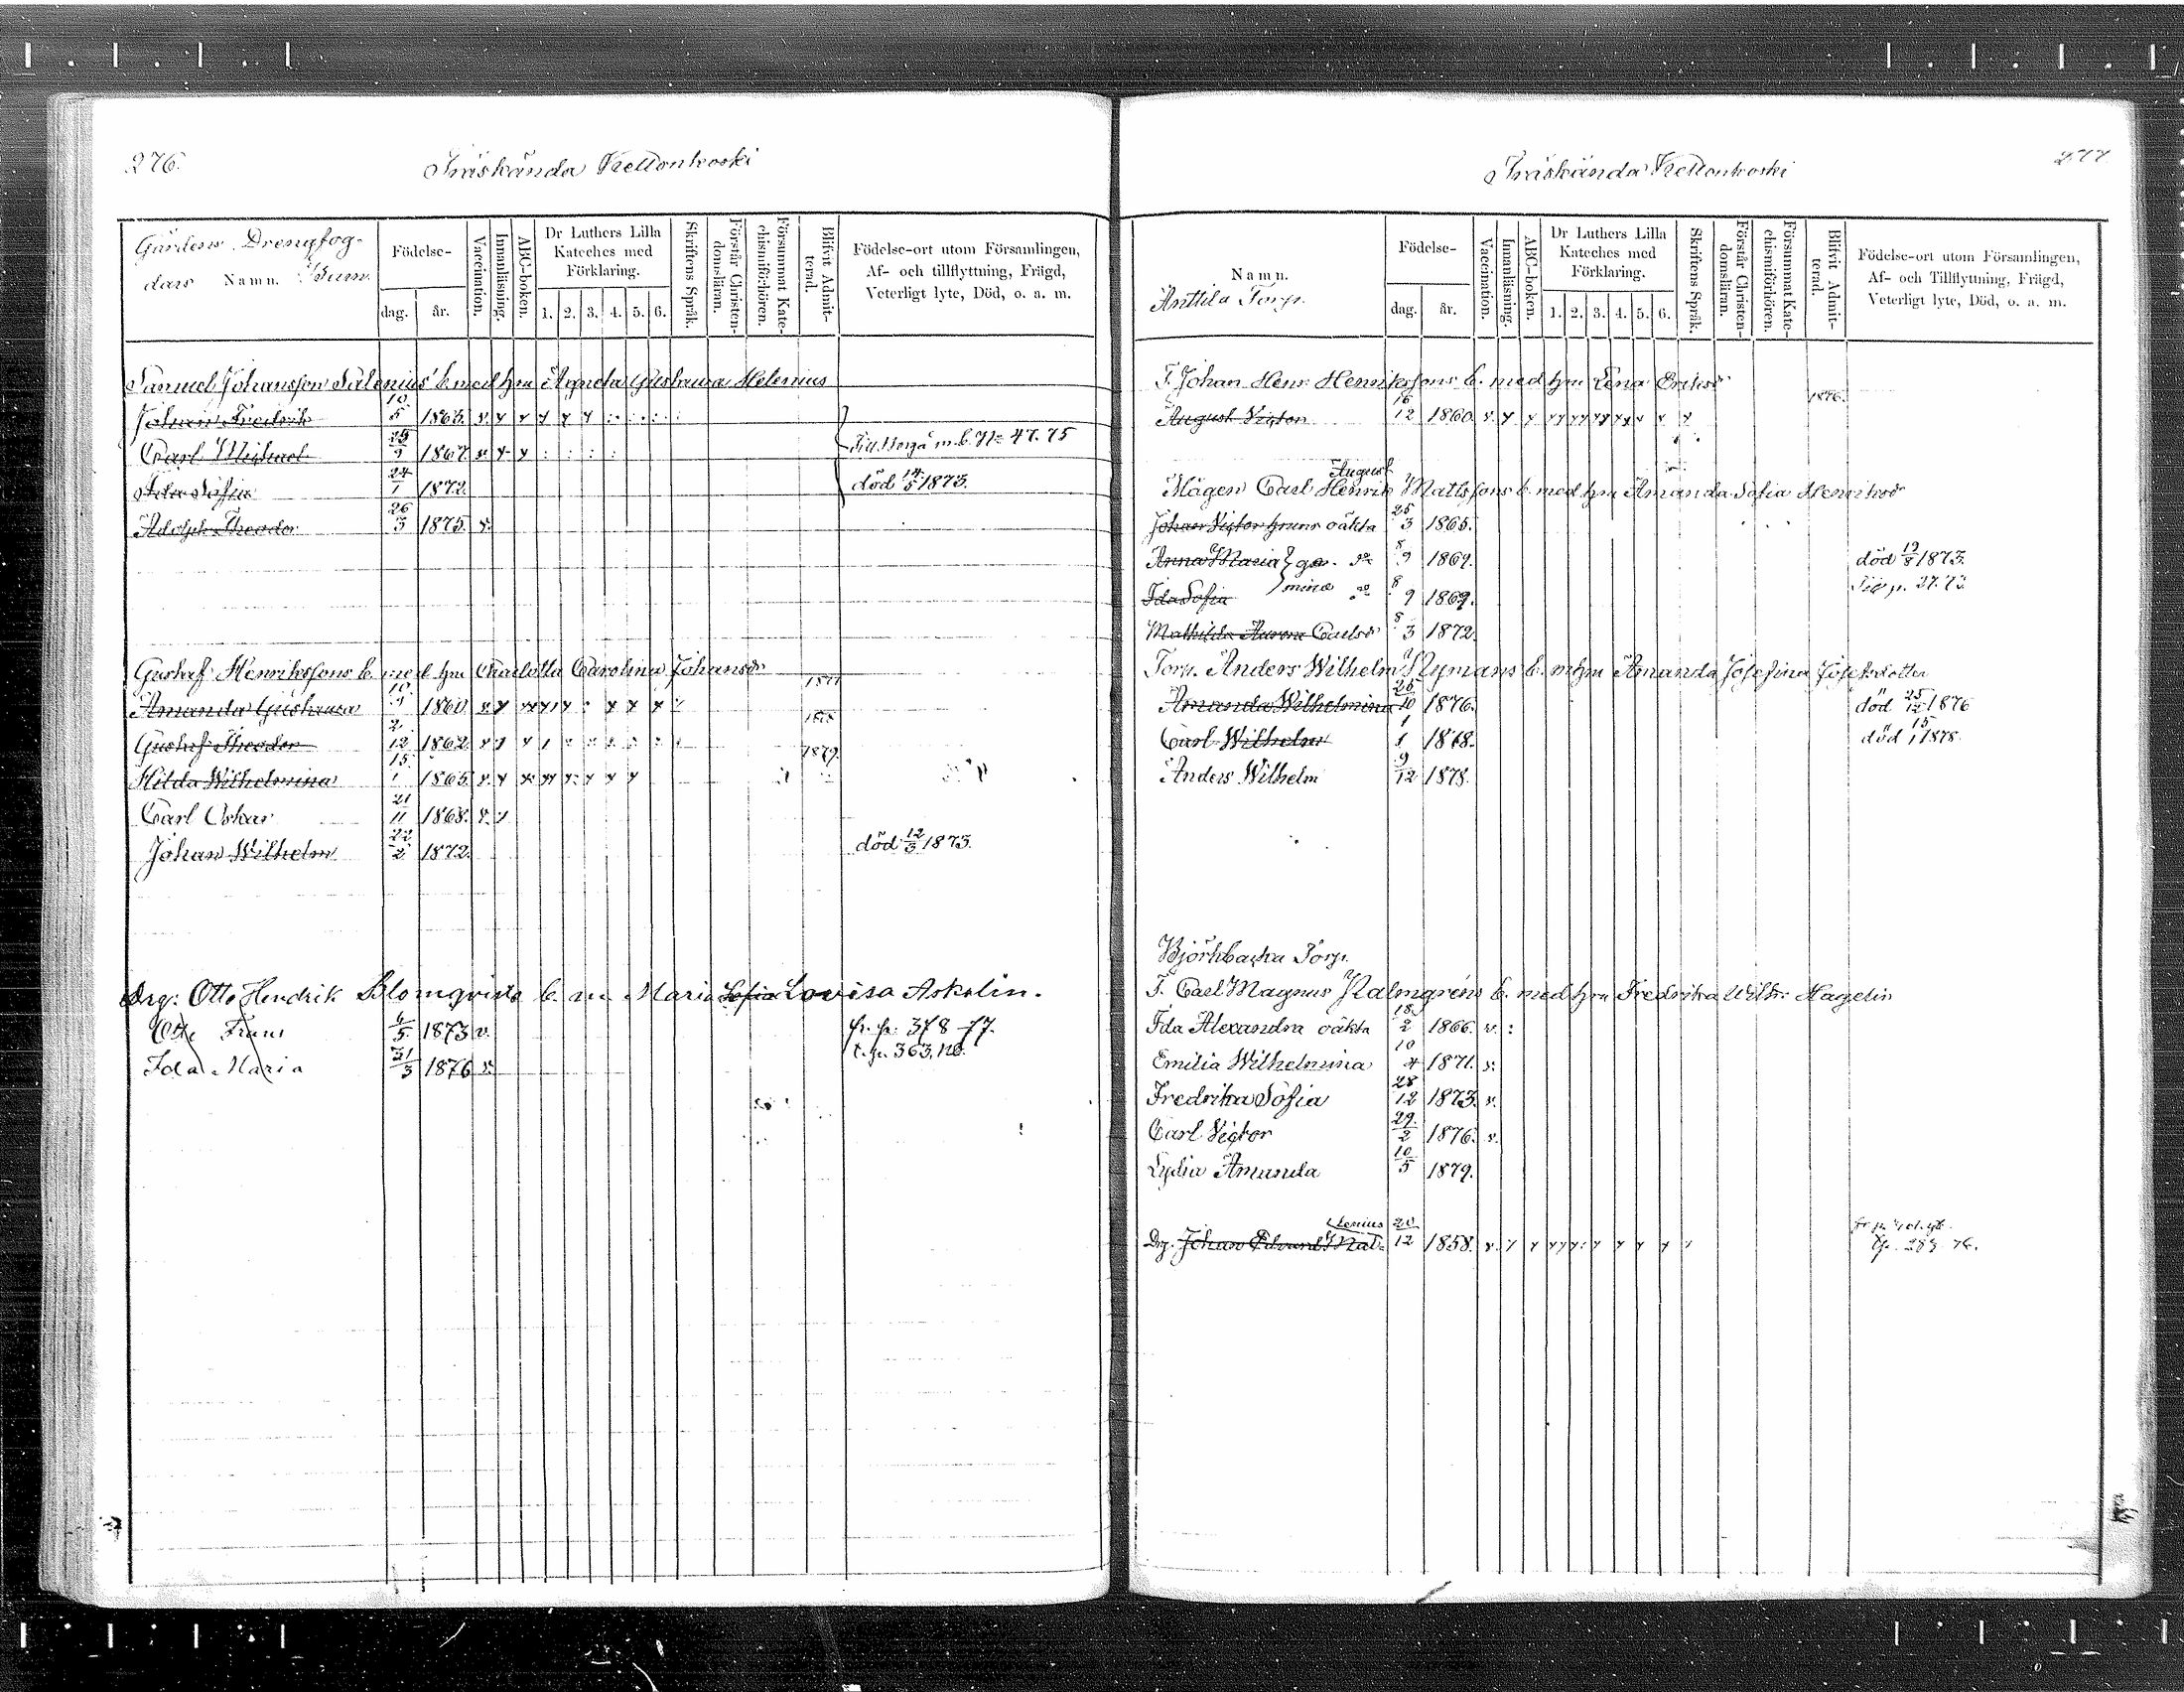 276.
Träskända Kellonkoski
Gårdens Drengfog-
dars Namn. Barn.
Födelse-
dag. år.
Vaccination.
Innanläsning.
ABC-boken.
Dr Luthers Lilla
Kateches med
Förklaring.
1. 2. 3. 4. 5. 6.
Skriftens Språk.
Förstår Christen-
domsläran.
Försummat Kate-
chismiförhören.
Blifvit Admit-
terad.
Födelse-ort utom Församlingen,
Af- och tillflyttning, Frägd,
Veterligt lyte, Död, o. a. m.
Samuel Johansson Salenius' b. med hm Agneta Gustava Helenius
Johan Fredrik 10/5 1863. v. x x x x x
Carl Michael 1867 v x x Till Borgå m. b. No 47. 75
Ida Sofia 24/1 1872. död 14/5 1873.
Adolph Theodor 26/3 1875. v.
Gustaf Henrikssons b. med hm Charlotta Carolina Johansdr
Amanda Gustava 10 1860 v x
Gustaf Theodor 2/12 1862 1878
Hilda Wilhelmina 15/1 1865 v. x 1879.
Carl Oskar 21/11 1868. v.
Johan Wilhelm 22/2 1872. död 12/3 1873.
Drg: Otto Hendrik Blomqvists b. m Maria Sofia Lovisa Askolin.
Otto Frans 6/5 1873 v. fr. p: 378 77.
Ida Maria 31/3 1876 v. t. p. 363.
277
Träskända Kellonkoski
Namn.
Anttila Torp.
Födelse-
dag. år.
Vaccination.
Innanläsning.
ABC-boken.
Dr Luthers Lilla
Kateches med
Förklaring.
1. 2. 3. 4. 5. 6.
Skriftens Språk.
Förstår Christen-
domsläran.
Försummat Kate-
chismiförhören.
Blifvit Admit-
terad.
Födelse-ort utom Församlingen,
Af- och Tillflyttning, Frägd,
Veterligt lyte, Död, o. a. m.
T. Johan Henr. Henrikssons b. med hm Lena Eriksdr
1876.
August Victor 16/12 1860 v. x x
August
Mågen Carl Henrik Mattssons b. med hm Amanda Sofia Henriksdr
Johan Victor hruns oäkta 25/3 1865.
Anna Maria 8/9 1869. död 19/8 1873.
Ida Sofia 8/9 1869.
Mathilda Aurora Carlsdr 8/3 1872.
Torp. Anders Wilhelm Nymans b. m hm Amanda Josefina Josefsdotter
Amanda Wilhelmina 26/10 1876. död 25/12 1876
Carl Wilhelm 1/1 1878. död 15/1 1878.
Anders Wilhelm 9/12 1878.
Björkbacka Torp.
T. Carl Magnus Malmgréns b. med hm Fredrika Wilh: Hagelin
Ida Alexandra oäkta 18/2 1866. v. :
Emilia Wilhelmina 10/4 1871. v.
Fredrika Sofia 28/12 1873. v.
Carl Victor 29/2 1876. v.
Lydia Amanda 10/5 1879.
Drg. Johan Edvard 20/12 1858. v. x